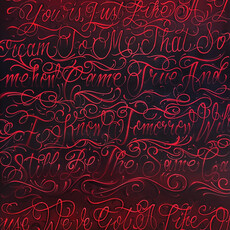 Yours, Just Like A D
ream To Me That So
mehow Came True And
I Know Tomorrow Will
Still Be The Same Ca
use We've Got A Life Of